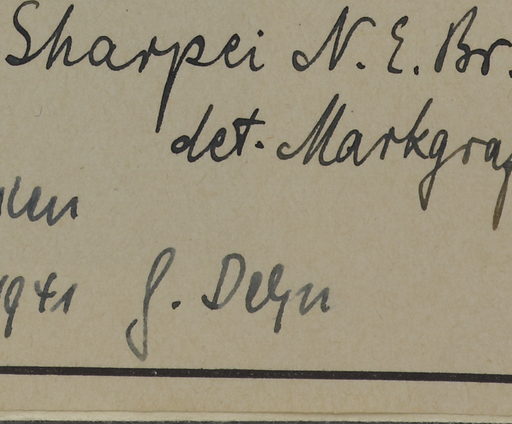 Sharpei N. E. Br.
det. Markgraf
1941 G. Dehn